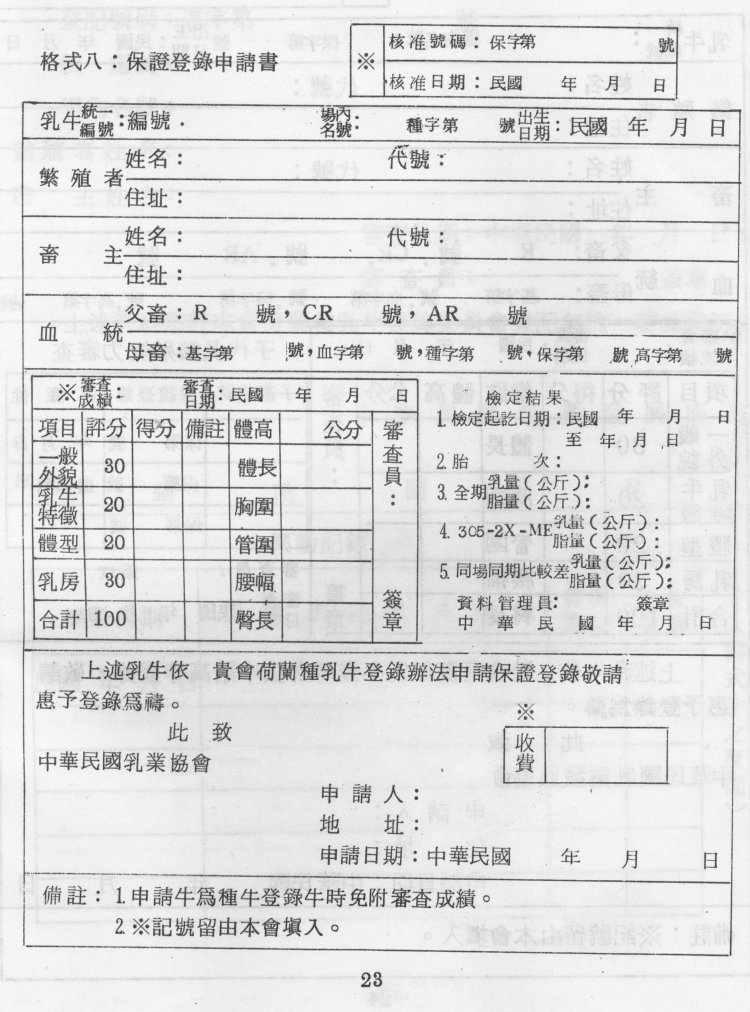 格式八：保證登錄申請書
※
核准號碼：保字第 號
核准日期：民國 年 月 日
乳牛統一編號：編號． 場內名號： 種字第 號 出生日期：民國 年 月 日
繁殖者
姓名： 代號：
住址：
畜 主
姓名： 代號：
住址：
血 統
父畜：R 號，CR 號，AR 號
母畜：基字第 號，血字第 號，種字第 號，保字第 號 高字第 號
※審查成績： 審查日期：民國 年 月 日
項目 評分 得分 備註 體高 公分
一般外貌 30 體長
乳牛特徵 20 胸圍
體型 20 管圍
乳房 30 腰幅
合計 100 臀長
審查員： 簽章
檢定結果
1. 檢定起訖日期：民國 年 月 日
至 年 月 日
2. 胎 次：
3. 全期乳量(公斤)：
脂量(公斤)：
4. 305-2X-MF乳量(公斤)：
脂量(公斤)：
5. 同場同期比較差乳量(公斤)：
脂量(公斤)：
資料管理員： 簽章
中 華 民 國 年 月 日
上述乳牛依 貴會荷蘭種乳牛登錄辦法申請保證登錄敬請
惠予登錄爲禱。
此 致
※
收費
中華民國乳業協會
申 請 人：
地 址：
申請日期：中華民國 年 月 日
備註：1. 申請牛爲種牛登錄牛時免附審查成績。
2. ※記號留由本會塡入。
23